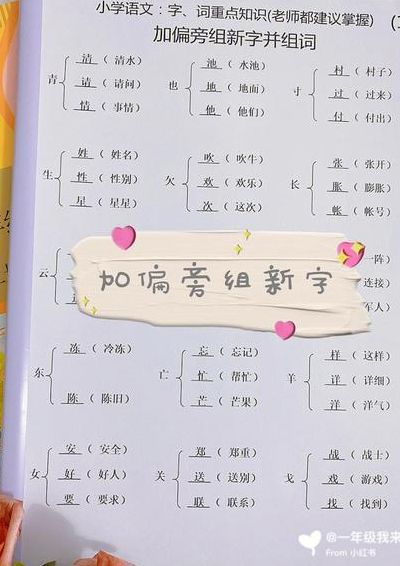 小学语文：字、词重点知识(老师都建议掌握)
加偏旁组新字并组词
青 清（清水） 请（请问） 情（事情）
也 池（水池） 地（地面） 他（他们）
寸 村（村子） 过（过来） 付（付出）
生 姓（姓名） 性（性别） 星（星星）
欠 吹（吹牛） 欢（欢乐） 次（这次）
长 张（张开） 胀（膨胀） 帐（帐号）
云
一阵）
连接）
军人）
加偏旁组新字
东 冻（冷冻） 陈（陈旧）
亡 忘（忘记） 忙（帮忙） 芒（芒果）
羊 样（这样） 详（详细） 洋（洋气）
女 安（安全） 好（好人） 要（要求）
关 郑（郑重） 送（送别） 联（联系）
戈 战（战士） 戏（游戏） 找（找到）
@一年级我来
From 小红书